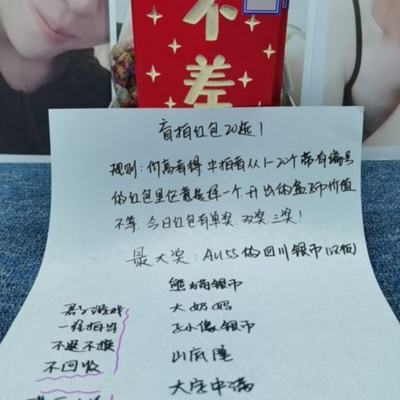 不差
盲拍红包20选1
规则:价高者得 中拍者从1-20个带有编号
的红包里任意选择一个,开出的盒子币价值
不等 今日红包有单奖 双奖 三奖!
最大奖: AU55的四川银币
熊猫银币
大奶妈
孙小像银币
山底座
大字中满
君子游戏
一经拍出
不退不换
不回收